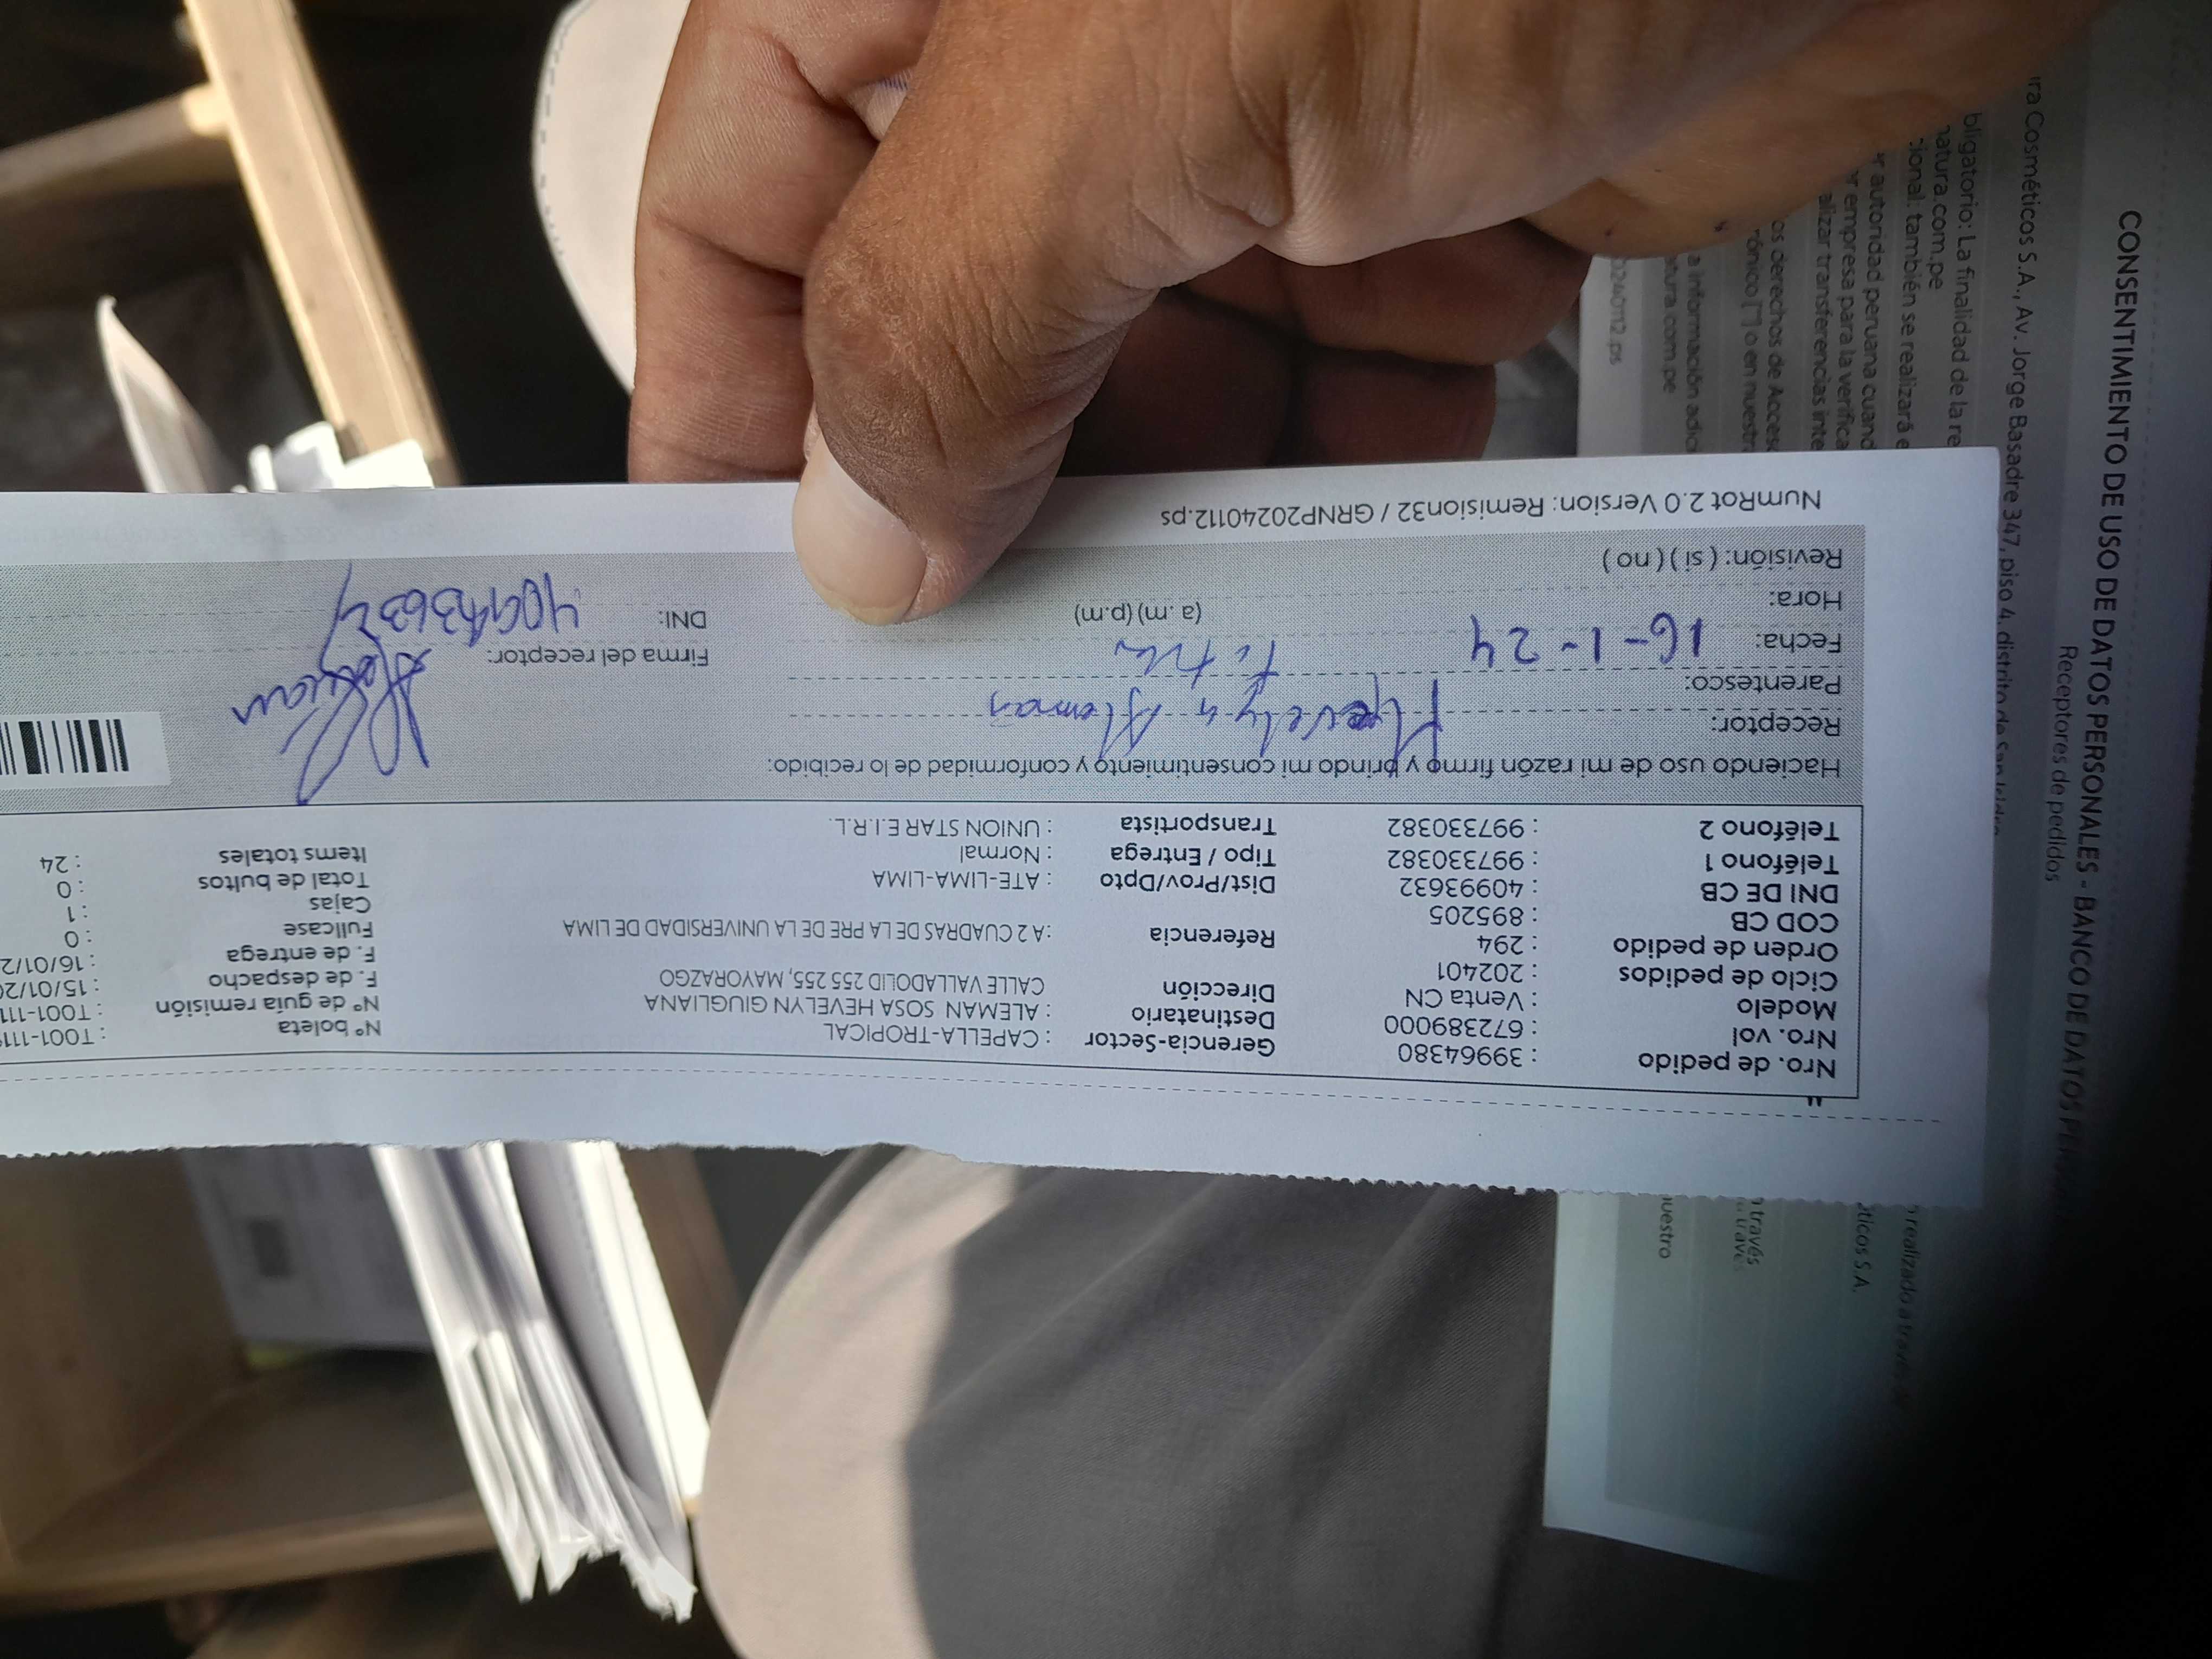 Nro. de pedido : 39964380 Gerencia-Sector : CAPELLA-TROPICAL Nº boleta : T001-111
Nro. vol : 672389000 Destinatario : ALEMAN SOSA HEVELYN GIUGLIANA Nº de guía remisión : T001-111
Modelo : Venta CN Dirección CALLE VALLADOLID 255 255, MAYORAZGO F. de despacho : 15/01/20
Ciclo de pedidos : 202401 F. de entrega : 16/01/2
Orden de pedido : 294 Referencia : A 2 CUADRAS DE LA PRE DE LA UNIVERSIDAD DE LIMA Fullcase : 0
COD CB : 895205 Cajas : 1
DNI DE CB : 40993632 Dist/Prov/Dpto : ATE-LIMA-LIMA Total de bultos : 0
Teléfono 1 : 997330382 Tipo / Entrega : Normal Items totales : 24
Teléfono 2 : 997330382 Transportista : UNION STAR E.I.R.L.
Haciendo uso de mi razón firmo y brindo mi consentimiento y conformidad de lo recibido:
Receptor: Hevelyn Aleman
Parentesco: Firma del receptor:
Fecha: 16-1-24 DNI:
Hora: (a.m) (p.m)
Revisión: ( si ) ( no )
NumRot 2.0 Version: Remision32 / GRNP20240112.ps
CONSENTIMIENTO DE USO DE DATOS PERSONALES - BANCO DE DATOS
Receptores de pedidos
ra Cosméticos S.A., Av. Jorge Basadre 347, piso 4, distrito de San
bligatorio: La finalidad de la re
natura.com.pe
cional: también se realizará e
r autoridad peruana cuand
er empresa para la verifica
alizar transferencias inte
os derechos de Acceso
rónico [*] o en nuestr
a información adic
atura.com.pe
0240112.ps
realizado a través
ticos S.A.
través
nuestro